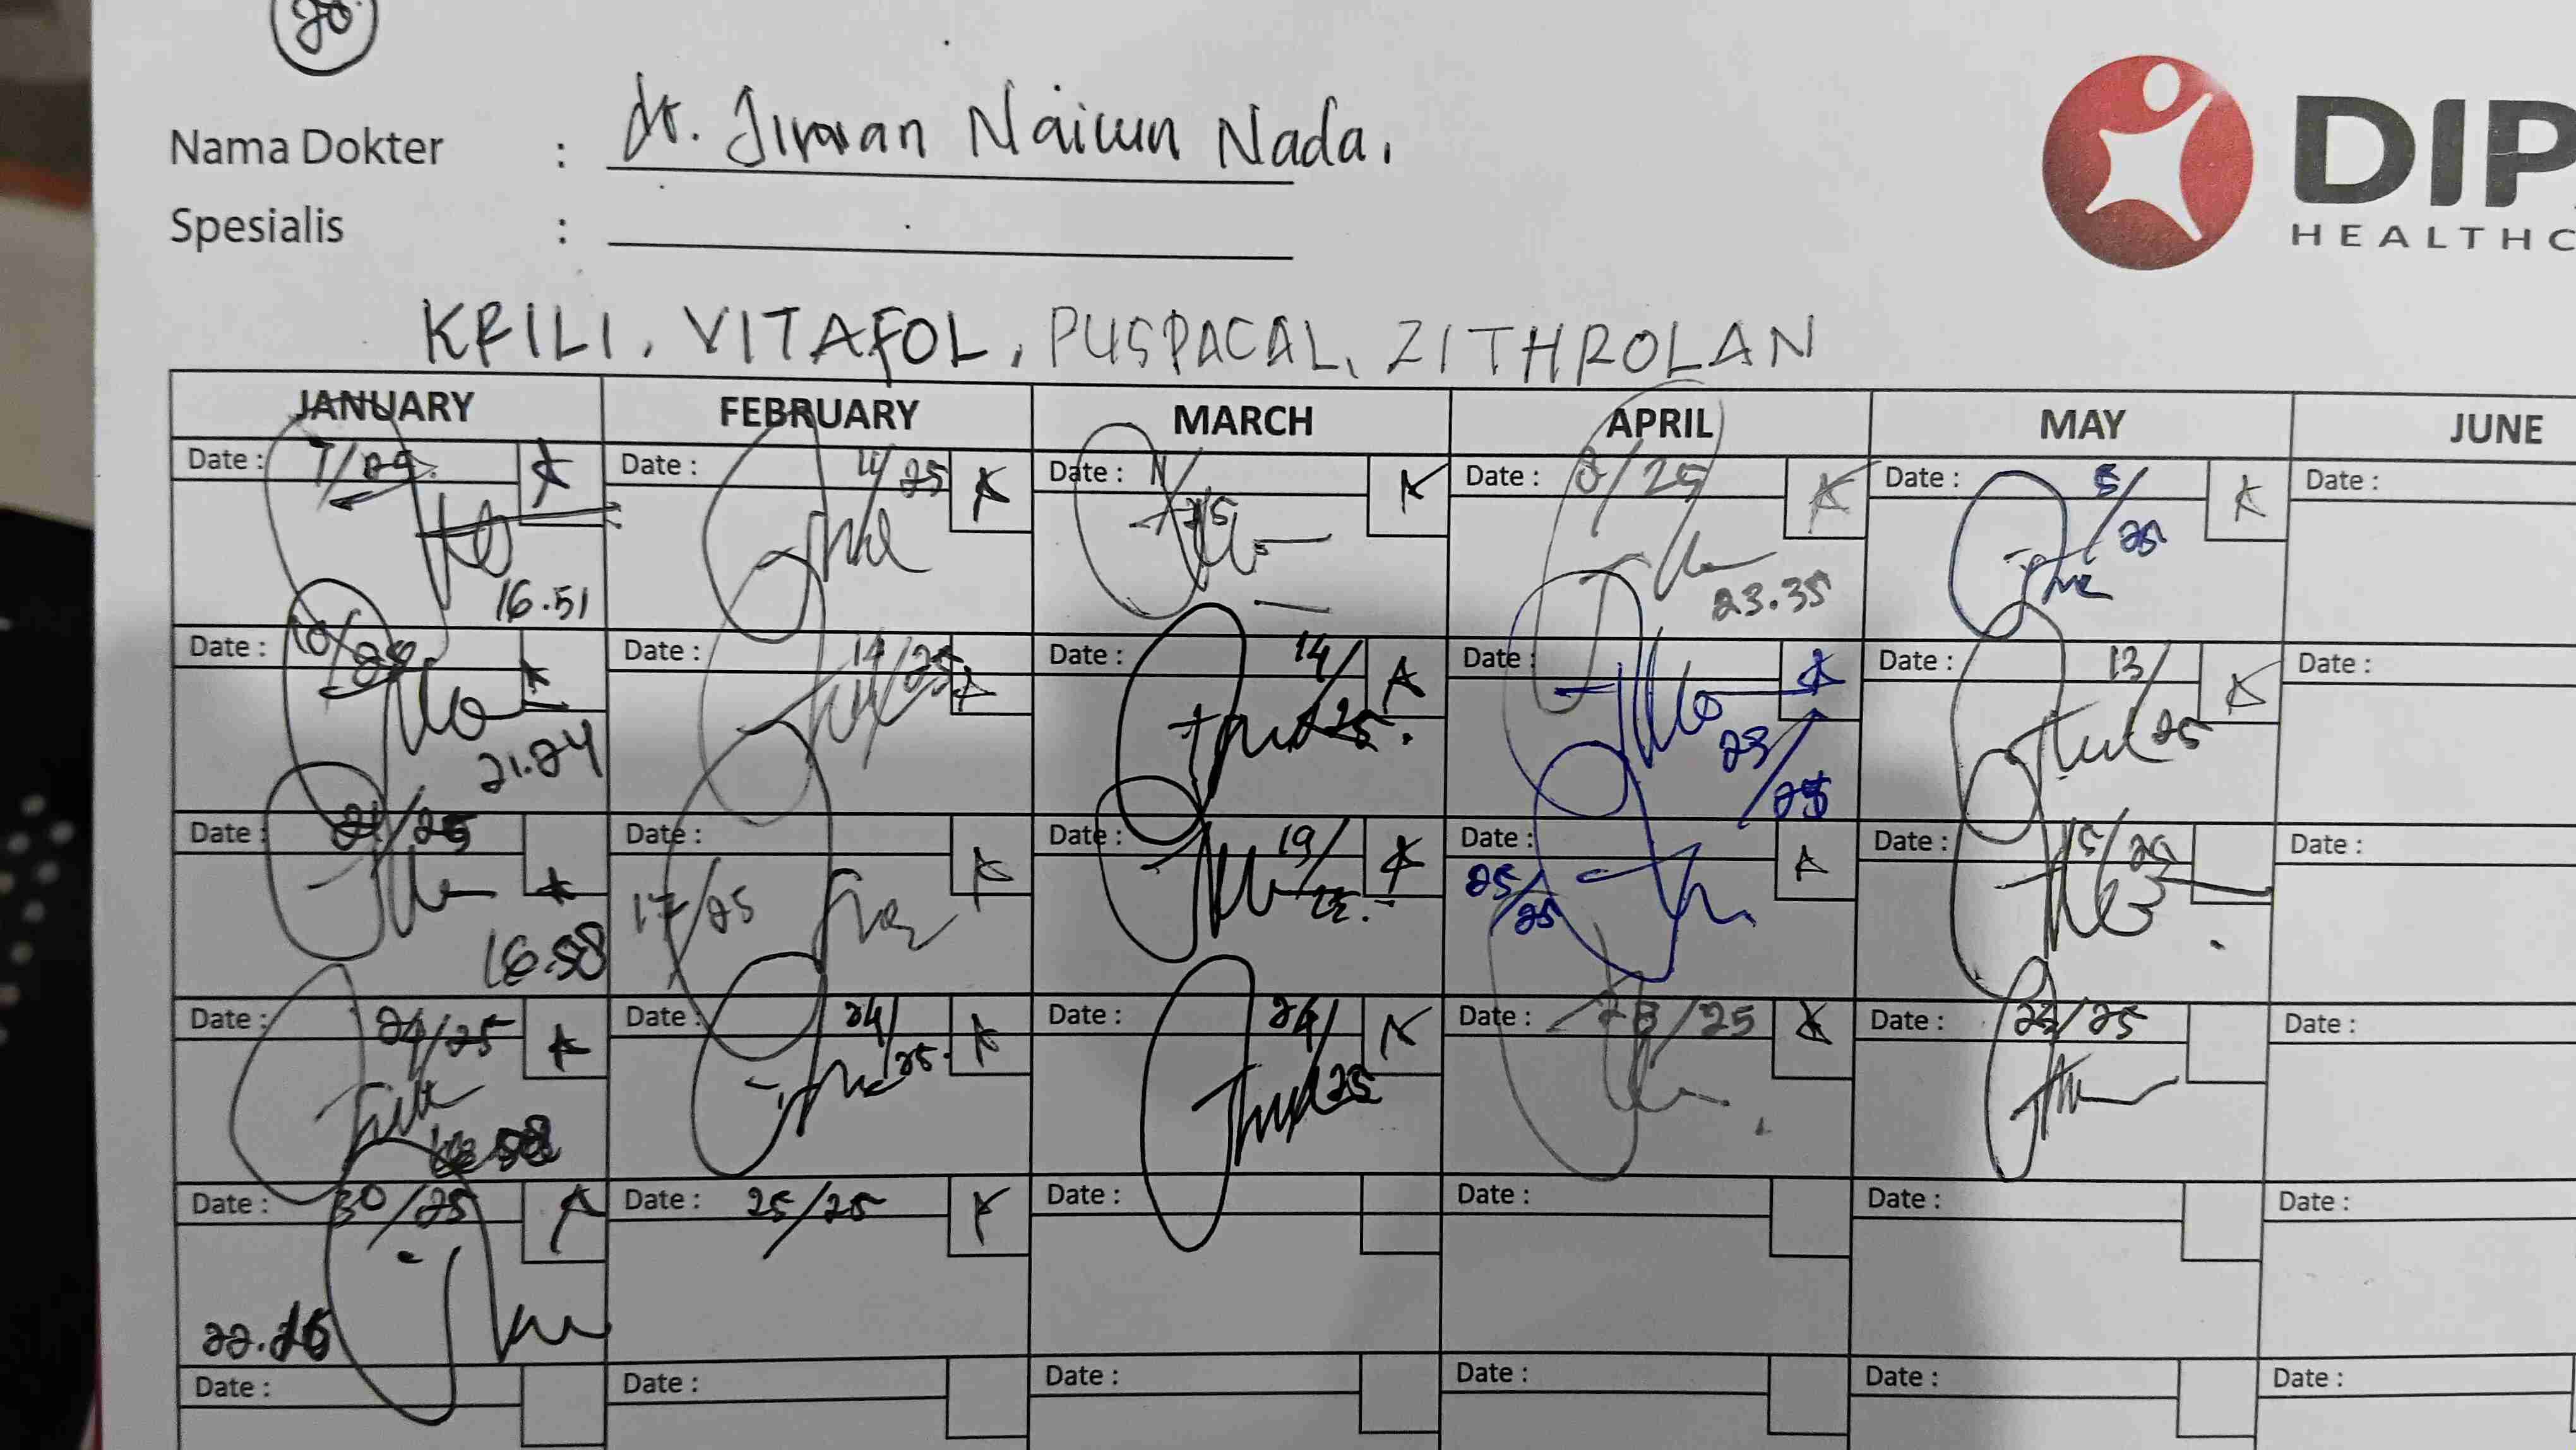 20
Nama Dokter : dr. Jirvan Naiwun Nada.
Spesialis :
DIP
HEALTHC
KRILI, VITAFOL, PUSPACAL, ZITHROLAN
JANUARY FEBRUARY MARCH APRIL MAY JUNE
Date : 7/25 A Date : 4/25 A Date : 11/25 A Date : 8/25 A Date : 5/25 A Date :
16.51 23.35
Date : 10/25 A Date : 14/25 A Date : 14/25. A Date : 23/25 A Date : 13/25 A Date :
21.24
Date : 21/25 A Date : 17/25 A Date : 19/25. A Date : 25/25 A Date : 15/25 Date :
16.58
Date : 24/25 A Date : 24/25. A Date : 24/25 A Date : 28/25 A Date : 22/25 Date :
Date : 30/25 A Date : 25/25 A Date : Date : Date : Date :
22.26
Date : Date : Date : Date : Date : Date :